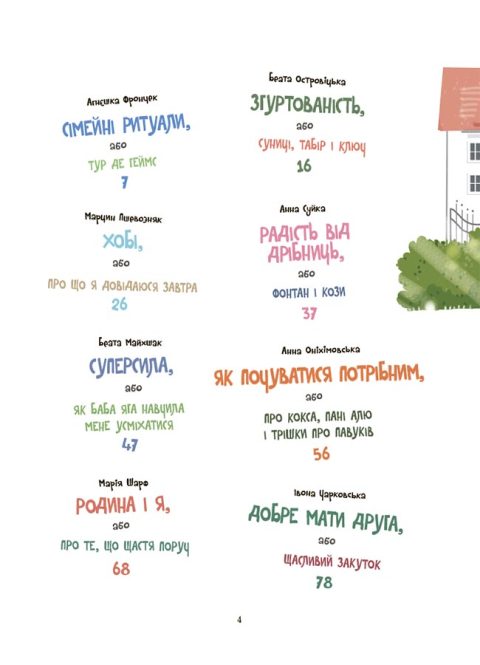 Агнешка Фронцек
СІМЕЙНІ РИТУАЛИ,
або
ТУР ДЕ ГЕЙМС
7
Беата Островіцька
ЗГУРТОВАНІСТЬ,
або
СУНИЦІ, ТАБІР І КЛЮЧ
16
Марцин Пшевозняк
ХОБІ,
або
ПРО ЩО Я ДОВІДАЮСЯ ЗАВТРА
26
Анна Суйка
РАДІСТЬ ВІД
ДРІБНИЦЬ,
або
ФОНТАН І КОЗИ
37
Беата Майхшак
СУПЕРСИЛА,
або
ЯК БАБА ЯГА НАВЧИЛА
МЕНЕ УСМІХАТИСЯ
47
Анна Оніхімовська
ЯК ПОЧУВАТИСЯ ПОТРІБНИМ,
або
ПРО КОКСА, ПАНІ АЛЮ
І ТРІШКИ ПРО ПАВУКІВ
56
Марія Шарф
РОДИНА І Я,
або
ПРО ТЕ, ЩО ЩАСТЯ ПОРУЧ
68
Івона Чарковська
ДОБРЕ МАТИ ДРУГА,
або
ЩАСЛИВИЙ ЗАКУТОК
78
4